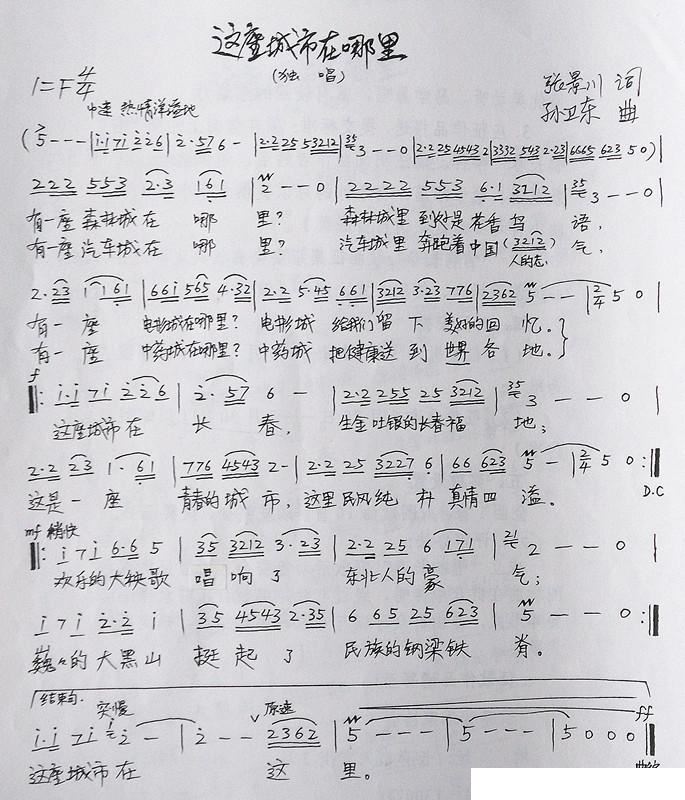 这座城市在哪里
(独 唱)
1=F 4/4
张景川 词
中速 热情洋溢地
孙卫东 曲
(5 - - - | i·i 7i 2 2 6 | 2· 57 6 - | 2·2 25 53212 | 35 3 - - 0 | 2·2 25 4543 2 | 3332 543 2·23 | 6665 623 5 0)|
222 553 2·3 161 | 2 - - 0 | 2222 553 6·1 3212 | 35 3 - - 0 |
有一座 森林城在 哪 里? 森林城里 到处是 花香 鸟 语,
有一座 汽车城在 哪 里? 汽车城里 奔跑着中国 (3212) 气,
人的志
2·23 1 161 | 66i 565 4·32 | 2·2 5·45 661 | 3212 3·23 776 | 2362 5 - - | 2/4 5 0 |
有一 座 电影城在哪里? 电影城 给我们留 下 美好的回 忆。}
有一 座 中药城在哪里? 中药城 把健康送 到 世界 各 地。}
f
‖: i·i 7i 2 2 6 | 2· 57 6 - | 2·2 255 25 3212 | 35 3 - - 0 |
这座城市 在 长 春, 生金吐银的长春福 地;
2·2 23 1· 61 | 776 4543 2 - | 2·2 25 3227 6 | 66 623 5 - | 2/4 5 0 :‖
这是一 座 青春的 城 市, 这里 民风纯 朴 真情四 溢。
D.C
mf 稍快
‖: i 7 i 6·6 5 | 35 3212 3·23 | 2·2 25 6 171 | 21 2 - - 0 |
欢乐的大秧歌 唱 响 了 东北人的 豪 气;
i 7 i 2·2 i | 35 4543 2·35 | 6 65 25 623 | 5 - - 0 :‖
巍々的 大黑山 挺 起 了 民族的钢梁铁 脊。
结束句. 突慢 v 原速 ff
i·i 7i 2 - | 2 - - 2362 | 5 - - - | 5 - - - | 5 0 0 0 ‖
这座城市 在 这 里。